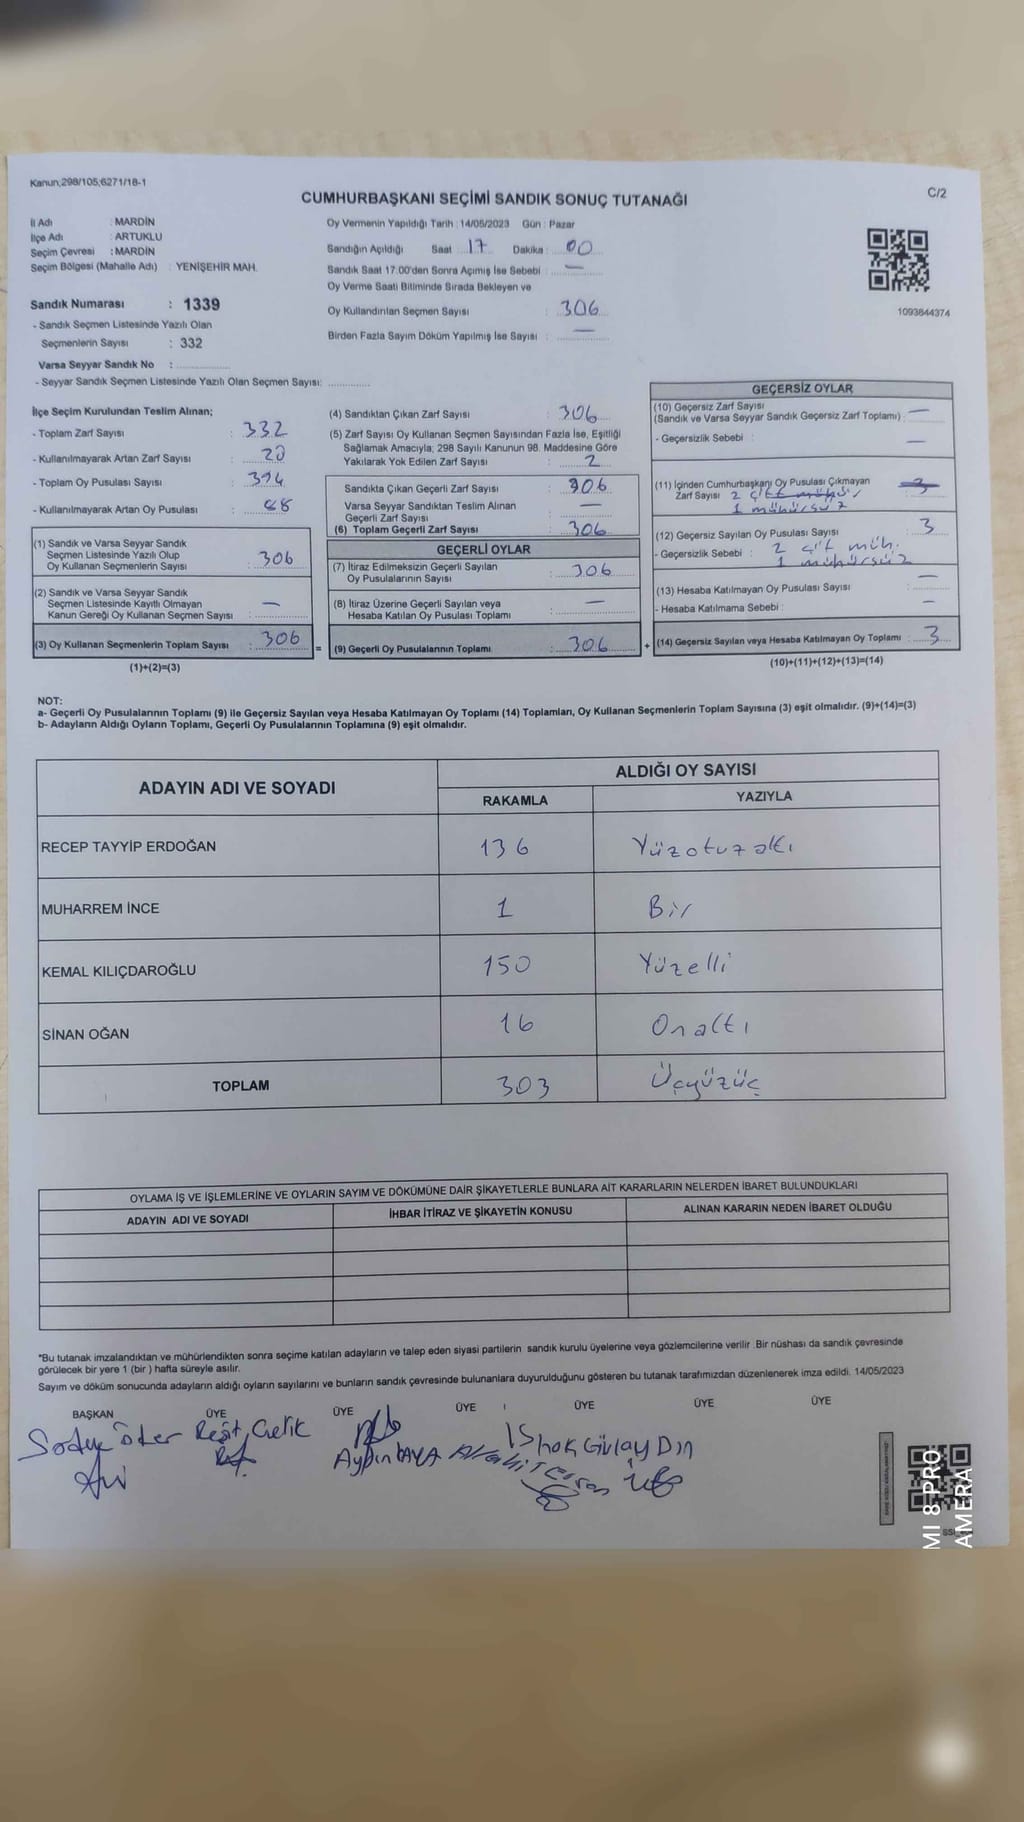 Kanun;298/105;6271/18-1
C/2
CUMHURBAŞKANI SEÇİMİ SANDIK SONUÇ TUTANAĞI
İl Adı : MARDİN
İlçe Adı : ARTUKLU
Seçim Çevresi : MARDİN
Seçim Bölgesi (Mahalle Adı) : YENİŞEHİR MAH.
Sandık Numarası : 1339
- Sandık Seçmen Listesinde Yazılı Olan
Seçmenlerin Sayısı : 332
Varsa Seyyar Sandık No :
- Seyyar Sandık Seçmen Listesinde Yazılı Olan Seçmen Sayısı:
Oy Vermenin Yapıldığı Tarih : 14/05/2023 Gün : Pazar
Sandığın Açıldığı Saat 17 Dakika : 00
Sandık Saat 17.00'den Sonra Açımış İse Sebebi : —
Oy Verme Saati Bitiminde Sırada Bekleyen ve
Oy Kullandırılan Seçmen Sayısı : 306
Birden Fazla Sayım Döküm Yapılmış İse Sayısı : —
1093844374
İlçe Seçim Kurulundan Teslim Alınan;
- Toplam Zarf Sayısı : 332
- Kullanılmayarak Artan Zarf Sayısı :
- Toplam Oy Pusulası Sayısı : 394
- Kullanılmayarak Artan Oy Pusulası :
(1) Sandık ve Varsa Seyyar Sandık
Seçmen Listesinde Yazılı Olup
Oy Kullanan Seçmenlerin Sayısı : 306
(2) Sandık ve Varsa Seyyar Sandık
Seçmen Listesinde Kayıtlı Olmayan
Kanun Gereği Oy Kullanan Seçmen Sayısı : —
(3) Oy Kullanan Seçmenlerin Toplam Sayısı : 306
(1)+(2)=(3)
(4) Sandıktan Çıkan Zarf Sayısı : 306
(5) Zarf Sayısı Oy Kullanan Seçmen Sayısından Fazla İse, Eşitliği
Sağlamak Amacıyla; 298 Sayılı Kanunun 98. Maddesine Göre
Yakılarak Yok Edilen Zarf Sayısı : 2
Sandıkta Çıkan Geçerli Zarf Sayısı : 306
Varsa Seyyar Sandıktan Teslim Alınan
Geçerli Zarf Sayısı : —
(6) Toplam Geçerli Zarf Sayısı : 306
=
GEÇERLİ OYLAR
(7) İtiraz Edilmeksizin Geçerli Sayılan
Oy Pusulalarının Sayısı : 306
(8) İtiraz Üzerine Geçerli Sayılan veya
Hesaba Katılan Oy Pusulası Toplamı : —
(9) Geçerli Oy Pusulalarının Toplamı : 306
+
GEÇERSİZ OYLAR
(10) Geçersiz Zarf Sayısı
(Sandık ve Varsa Seyyar Sandık Geçersiz Zarf Toplamı) : —
- Geçersizlik Sebebi : —
(11) İçinden Cumhurbaşkanı Oy Pusulası Çıkmayan
Zarf Sayısı 2 çift mühür 3
1 mühürsüz
(12) Geçersiz Sayılan Oy Pusulası Sayısı : 3
- Geçersizlik Sebebi : 2 çift müh.
1 mühürsüz
(13) Hesaba Katılmayan Oy Pusulası Sayısı : —
- Hesaba Katılmama Sebebi : —
(14) Geçersiz Sayılan veya Hesaba Katılmayan Oy Toplamı : 3
(10)+(11)+(12)+(13)=(14)
NOT:
a- Geçerli Oy Pusulalarının Toplamı (9) ile Geçersiz Sayılan veya Hesaba Katılmayan Oy Toplamı (14) Toplamları, Oy Kullanan Seçmenlerin Toplam Sayısına (3) eşit olmalıdır. (9)+(14)=(3)
b- Adayların Aldığı Oyların Toplamı, Geçerli Oy Pusulalarının Toplamına (9) eşit olmalıdır.
ADAYIN ADI VE SOYADI
ALDIĞI OY SAYISI
RAKAMLA YAZIYLA
RECEP TAYYİP ERDOĞAN 136 Yüzotuzaltı
MUHARREM İNCE 1 Bir
KEMAL KILIÇDAROĞLU 150 Yüzelli
SİNAN OĞAN 16 Onaltı
TOPLAM 303 Üçyüzüç
OYLAMA İŞ VE İŞLEMLERİNE VE OYLARIN SAYIM VE DÖKÜMÜNE DAİR ŞİKAYETLERLE BUNLARA AİT KARARLARIN NELERDEN İBARET BULUNDUKLARI
ADAYIN ADI VE SOYADI İHBAR İTİRAZ VE ŞİKAYETİN KONUSU ALINAN KARARIN NEDEN İBARET OLDUĞU
*Bu tutanak imzalandıktan ve mühürlendikten sonra seçime katılan adayların ve talep eden siyasi partilerin sandık kurulu üyelerine veya gözlemcilerine verilir. Bir nüshası da sandık çevresinde
görülecek bir yere 1 (bir) hafta süreyle asılır.
Sayım ve döküm sonucunda adayların aldığı oyların sayılarını ve bunların sandık çevresinde bulunanlara duyurulduğunu gösteren bu tutanak tarafımızdan düzenlenerek imza edildi. 14/05/2023
BAŞKAN ÜYE ÜYE ÜYE ÜYE ÜYE ÜYE
Reşit Çelik
Aydın KAYA
MI 8 PRO
AMERA